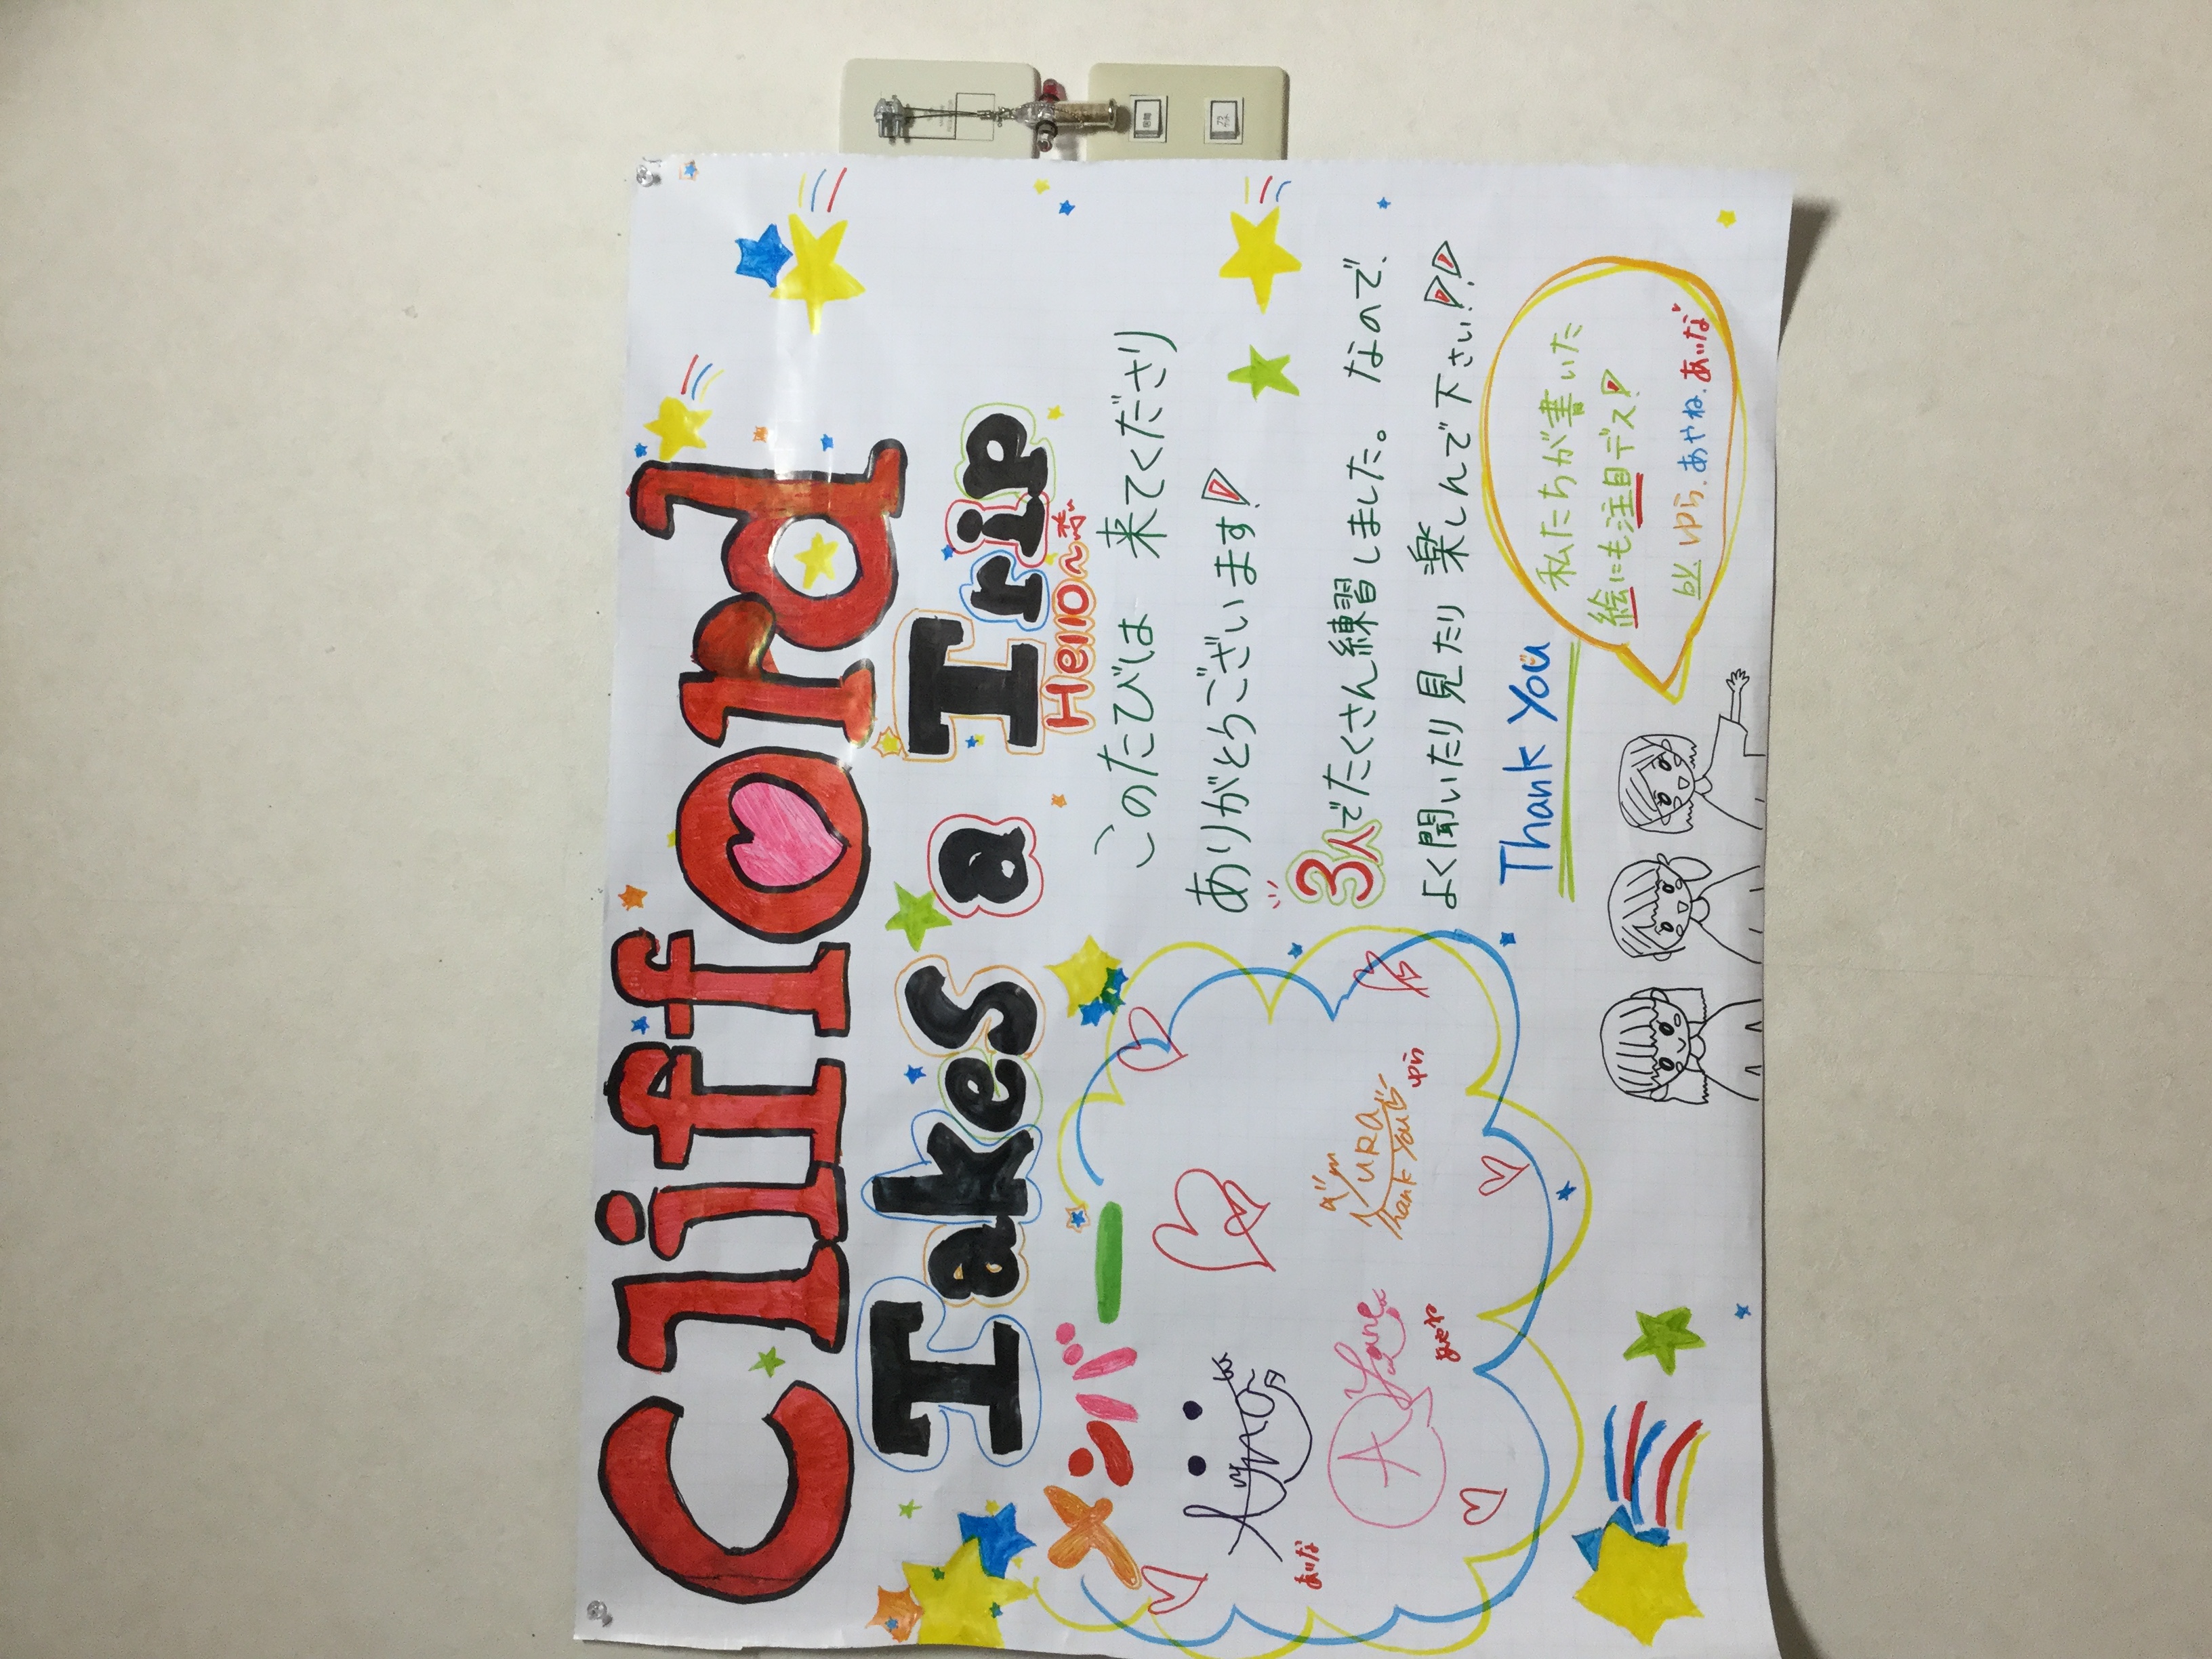 Clifford
Takes a Trip
Hello〜
このたびは 来てくださり
ありがとうございます!
3人でたくさん練習しました。なので、
よく聞いたり見たり 楽しんで下さい!!
Thank You
メンバー
あいな
A
Ayane
あやね
I'm
Yura
Thank you
ゆら
私たちが書いた
絵にも注目デス!
by ゆら、あやね、あいな